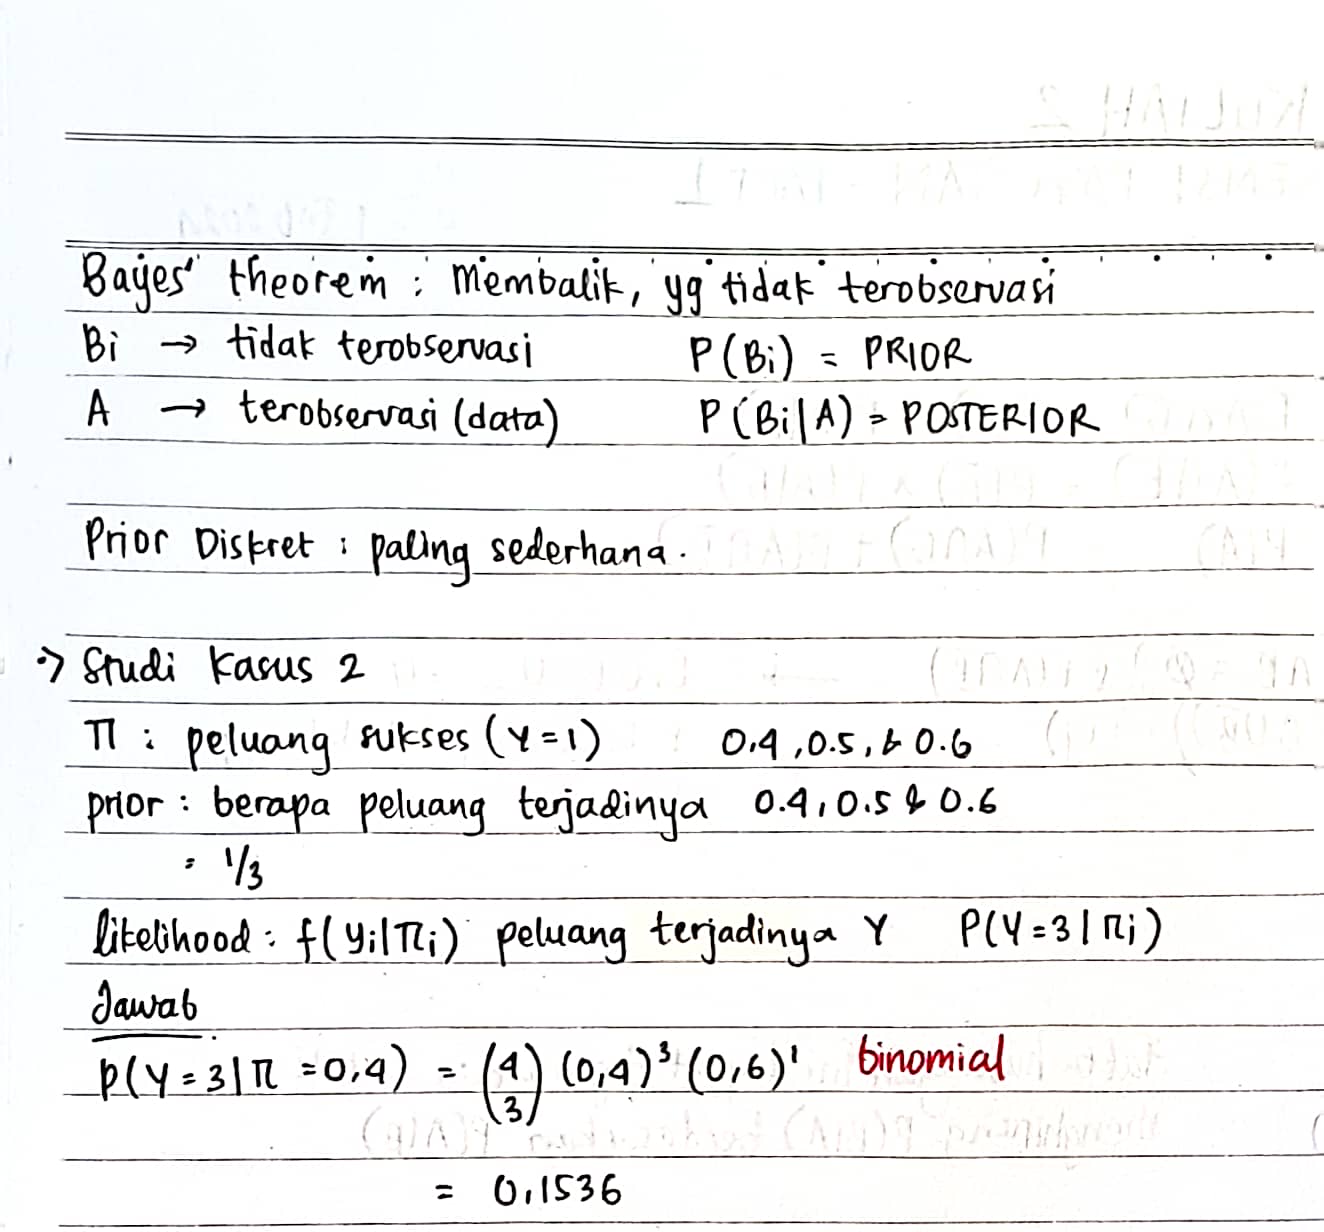 Bayes' theorem : Membalik, yg tidak terobservasi
Bi → tidak terobservasi P(Bi) = PRIOR
A → terobservasi (data) P(Bi|A) = POSTERIOR
Prior Diskret : paling sederhana.
→ Studi Kasus 2
π : peluang sukses (Y=1) 0.4, 0.5, & 0.6
prior : berapa peluang terjadinya 0.4, 0.5 & 0.6
= 1/3
likelihood : f(yi|πi) peluang terjadinya Y P(Y=3|πi)
Jawab
P(Y=3|π=0,4) = (4 3) (0,4)³ (0,6)¹ binomial
= 0,1536